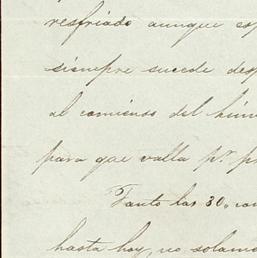 resfriado aunque esp
siempre sucede desp
al comienso del
para que valla pr. pr
Tanto las 30, con
hasta hoy, no solame